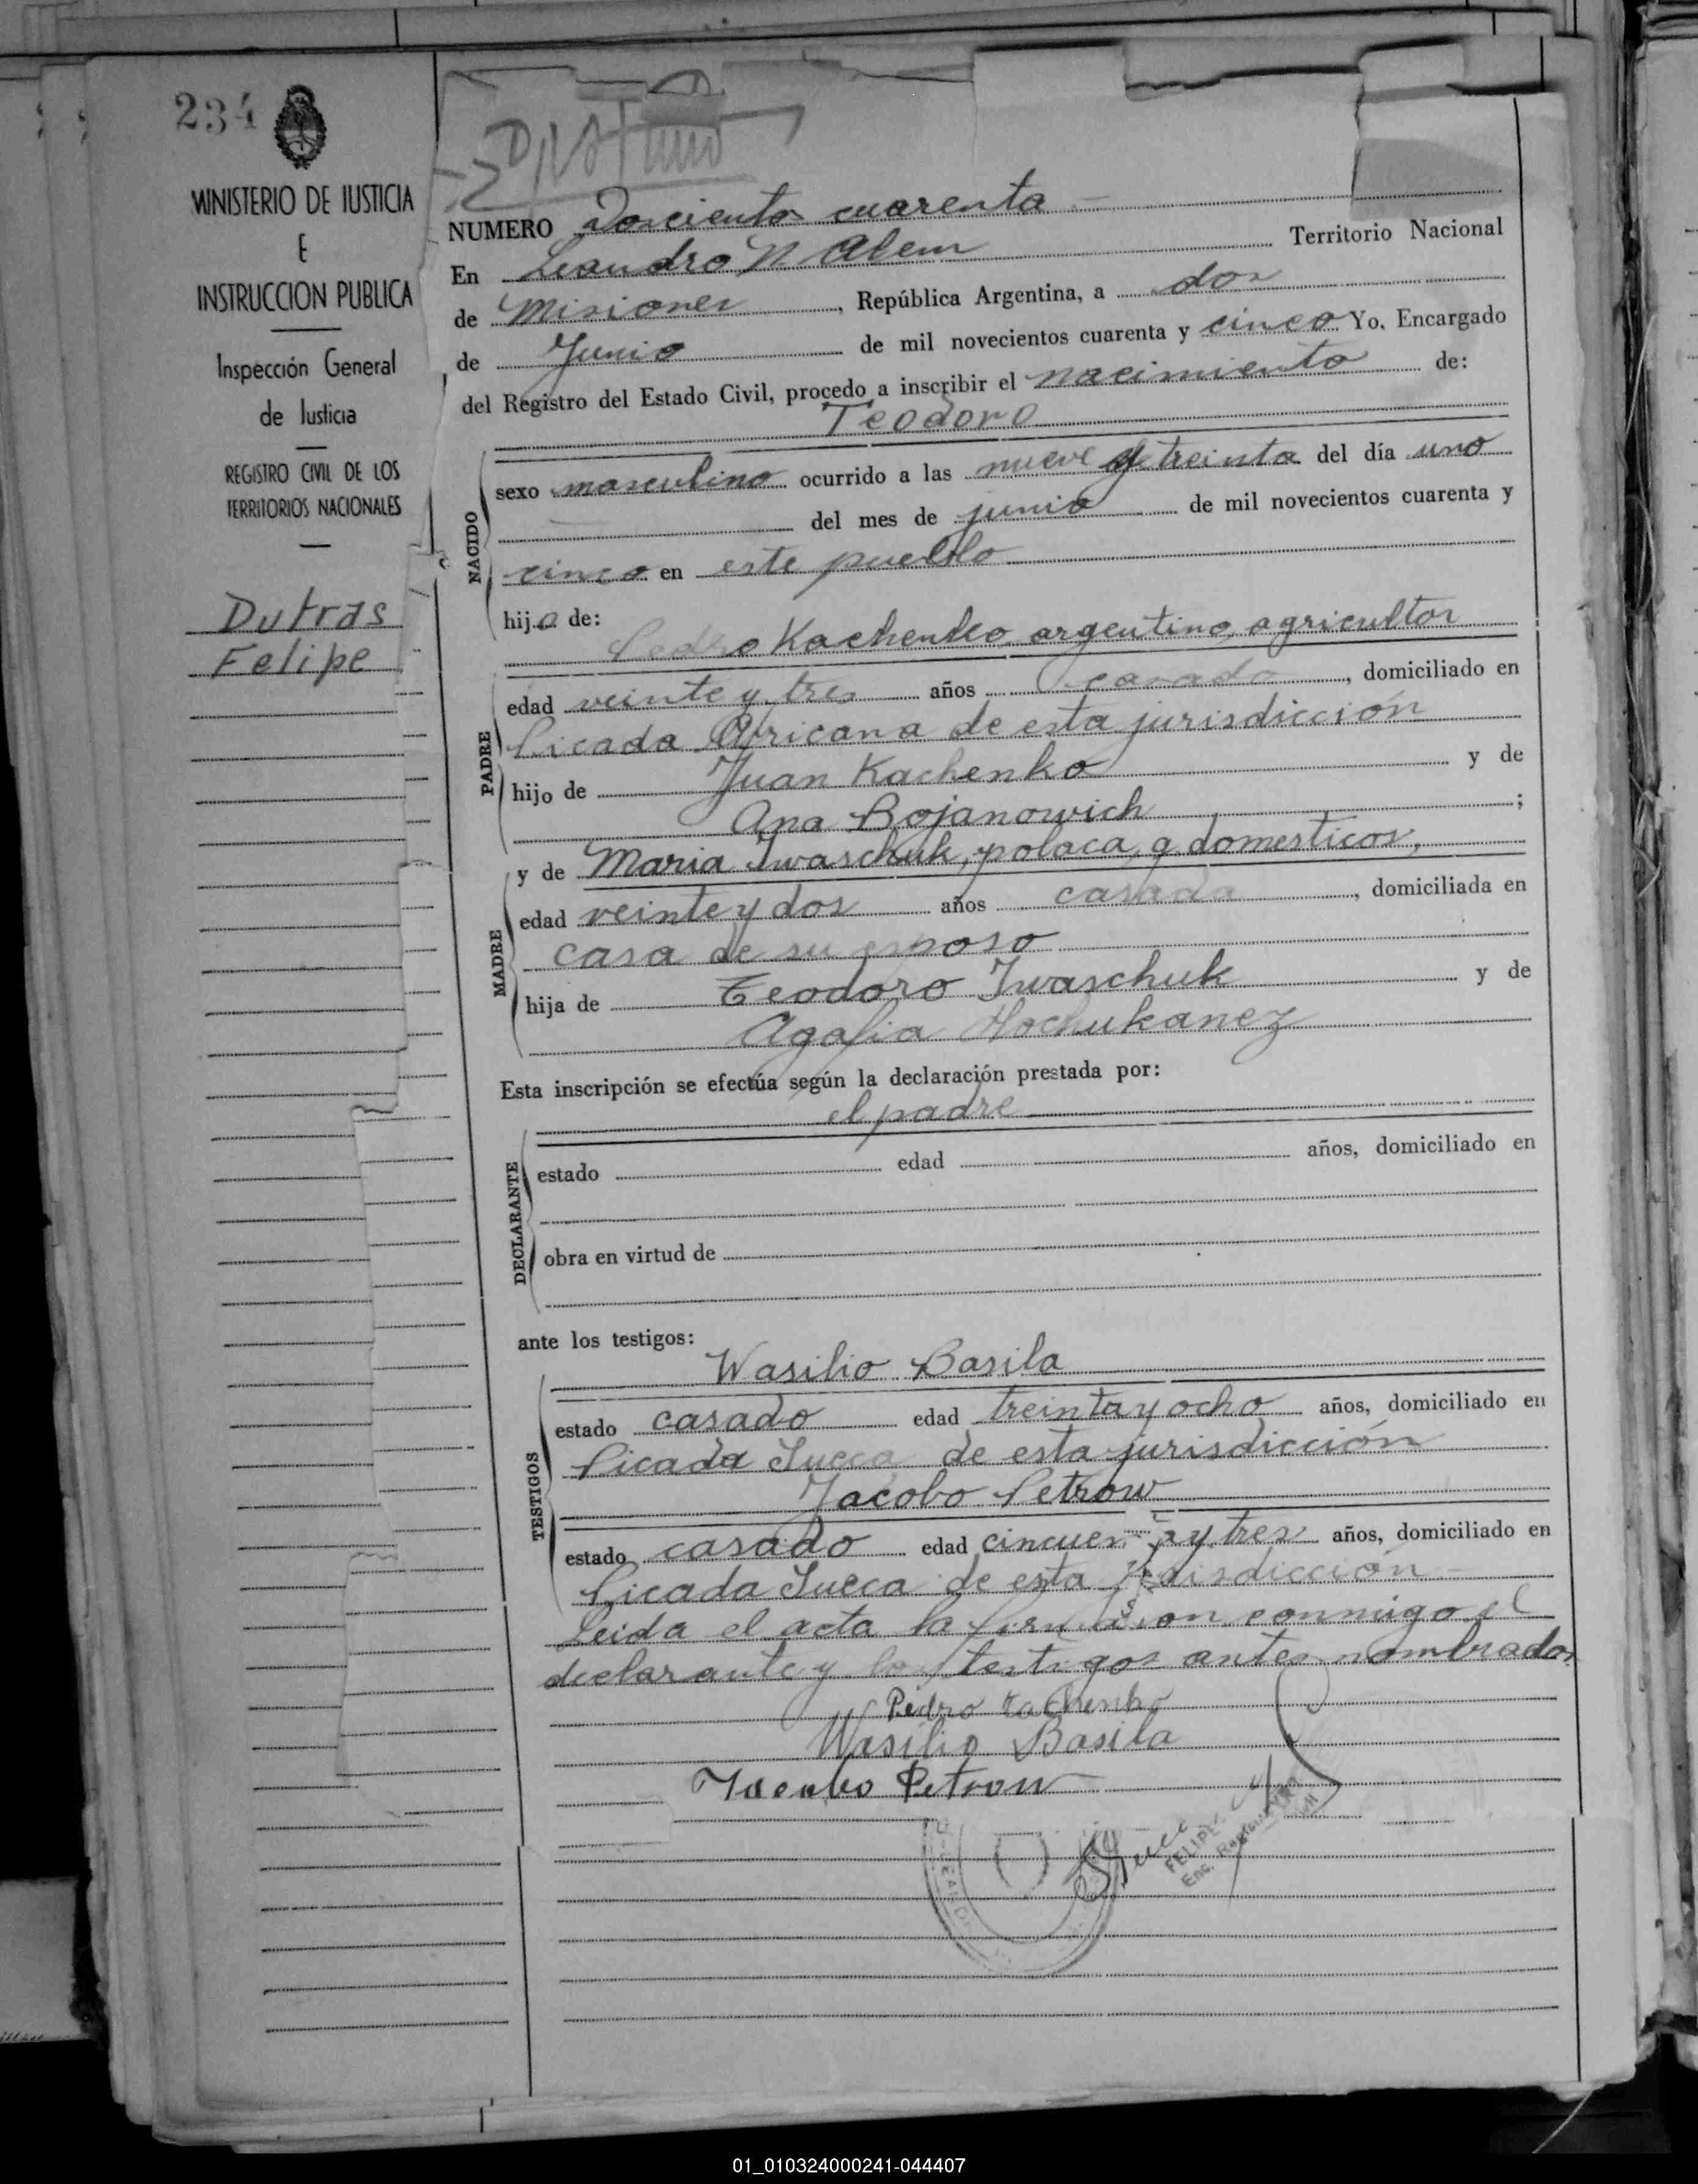 234
MINISTERIO DE JUSTICIA
E
INSTRUCCION PUBLICA
Inspección General
de Justicia
REGISTRO CIVIL DE LOS
TERRITORIOS NACIONALES
Dutras
Felipe
NUMERO Doscientos cuarenta
En Leandro N. Alem Territorio Nacional
de Misiones, República Argentina, a dos
de Junio de mil novecientos cuarenta y cinco Yo, Encargado
del Registro del Estado Civil, procedo a inscribir el nacimiento de:
Teodoro
NACIDO
sexo masculino ocurrido a las nueve y treinta del día uno
del mes de junio de mil novecientos cuarenta y
cinco en este pueblo
hijo de:
Pedro Kachenko argentino, agricultor
PADRE
edad veinte y tres años casado, domiciliado en
Picada Africana de esta jurisdicción
hijo de Juan Kachenko y de
Ana Bojanowich;
MADRE
y de Maria Iwaschuk, polaca, q. domesticos,
edad veinte y dos años casada, domiciliada en
casa de su esposo
hija de Teodoro Iwaschuk y de
Agafia
Esta inscripción se efectúa según la declaración prestada por:
el padre
DECLARANTE
estado edad años, domiciliado en
obra en virtud de
ante los testigos:
TESTIGOS
Wasilio Basila
estado casado edad treinta y ocho años, domiciliado en
Picada Sueca de esta jurisdicción
Jacobo Petrow
estado casado edad cincuenta y tres años, domiciliado en
Picada Sueca de esta jurisdicción
Leida el acta la firmaron conmigo el
declarante y los testigos antes nombrados.
Pedro Kachenko
Wasilio Basila
Jacobo Petrow
FELIPE
01_010324000241-044407